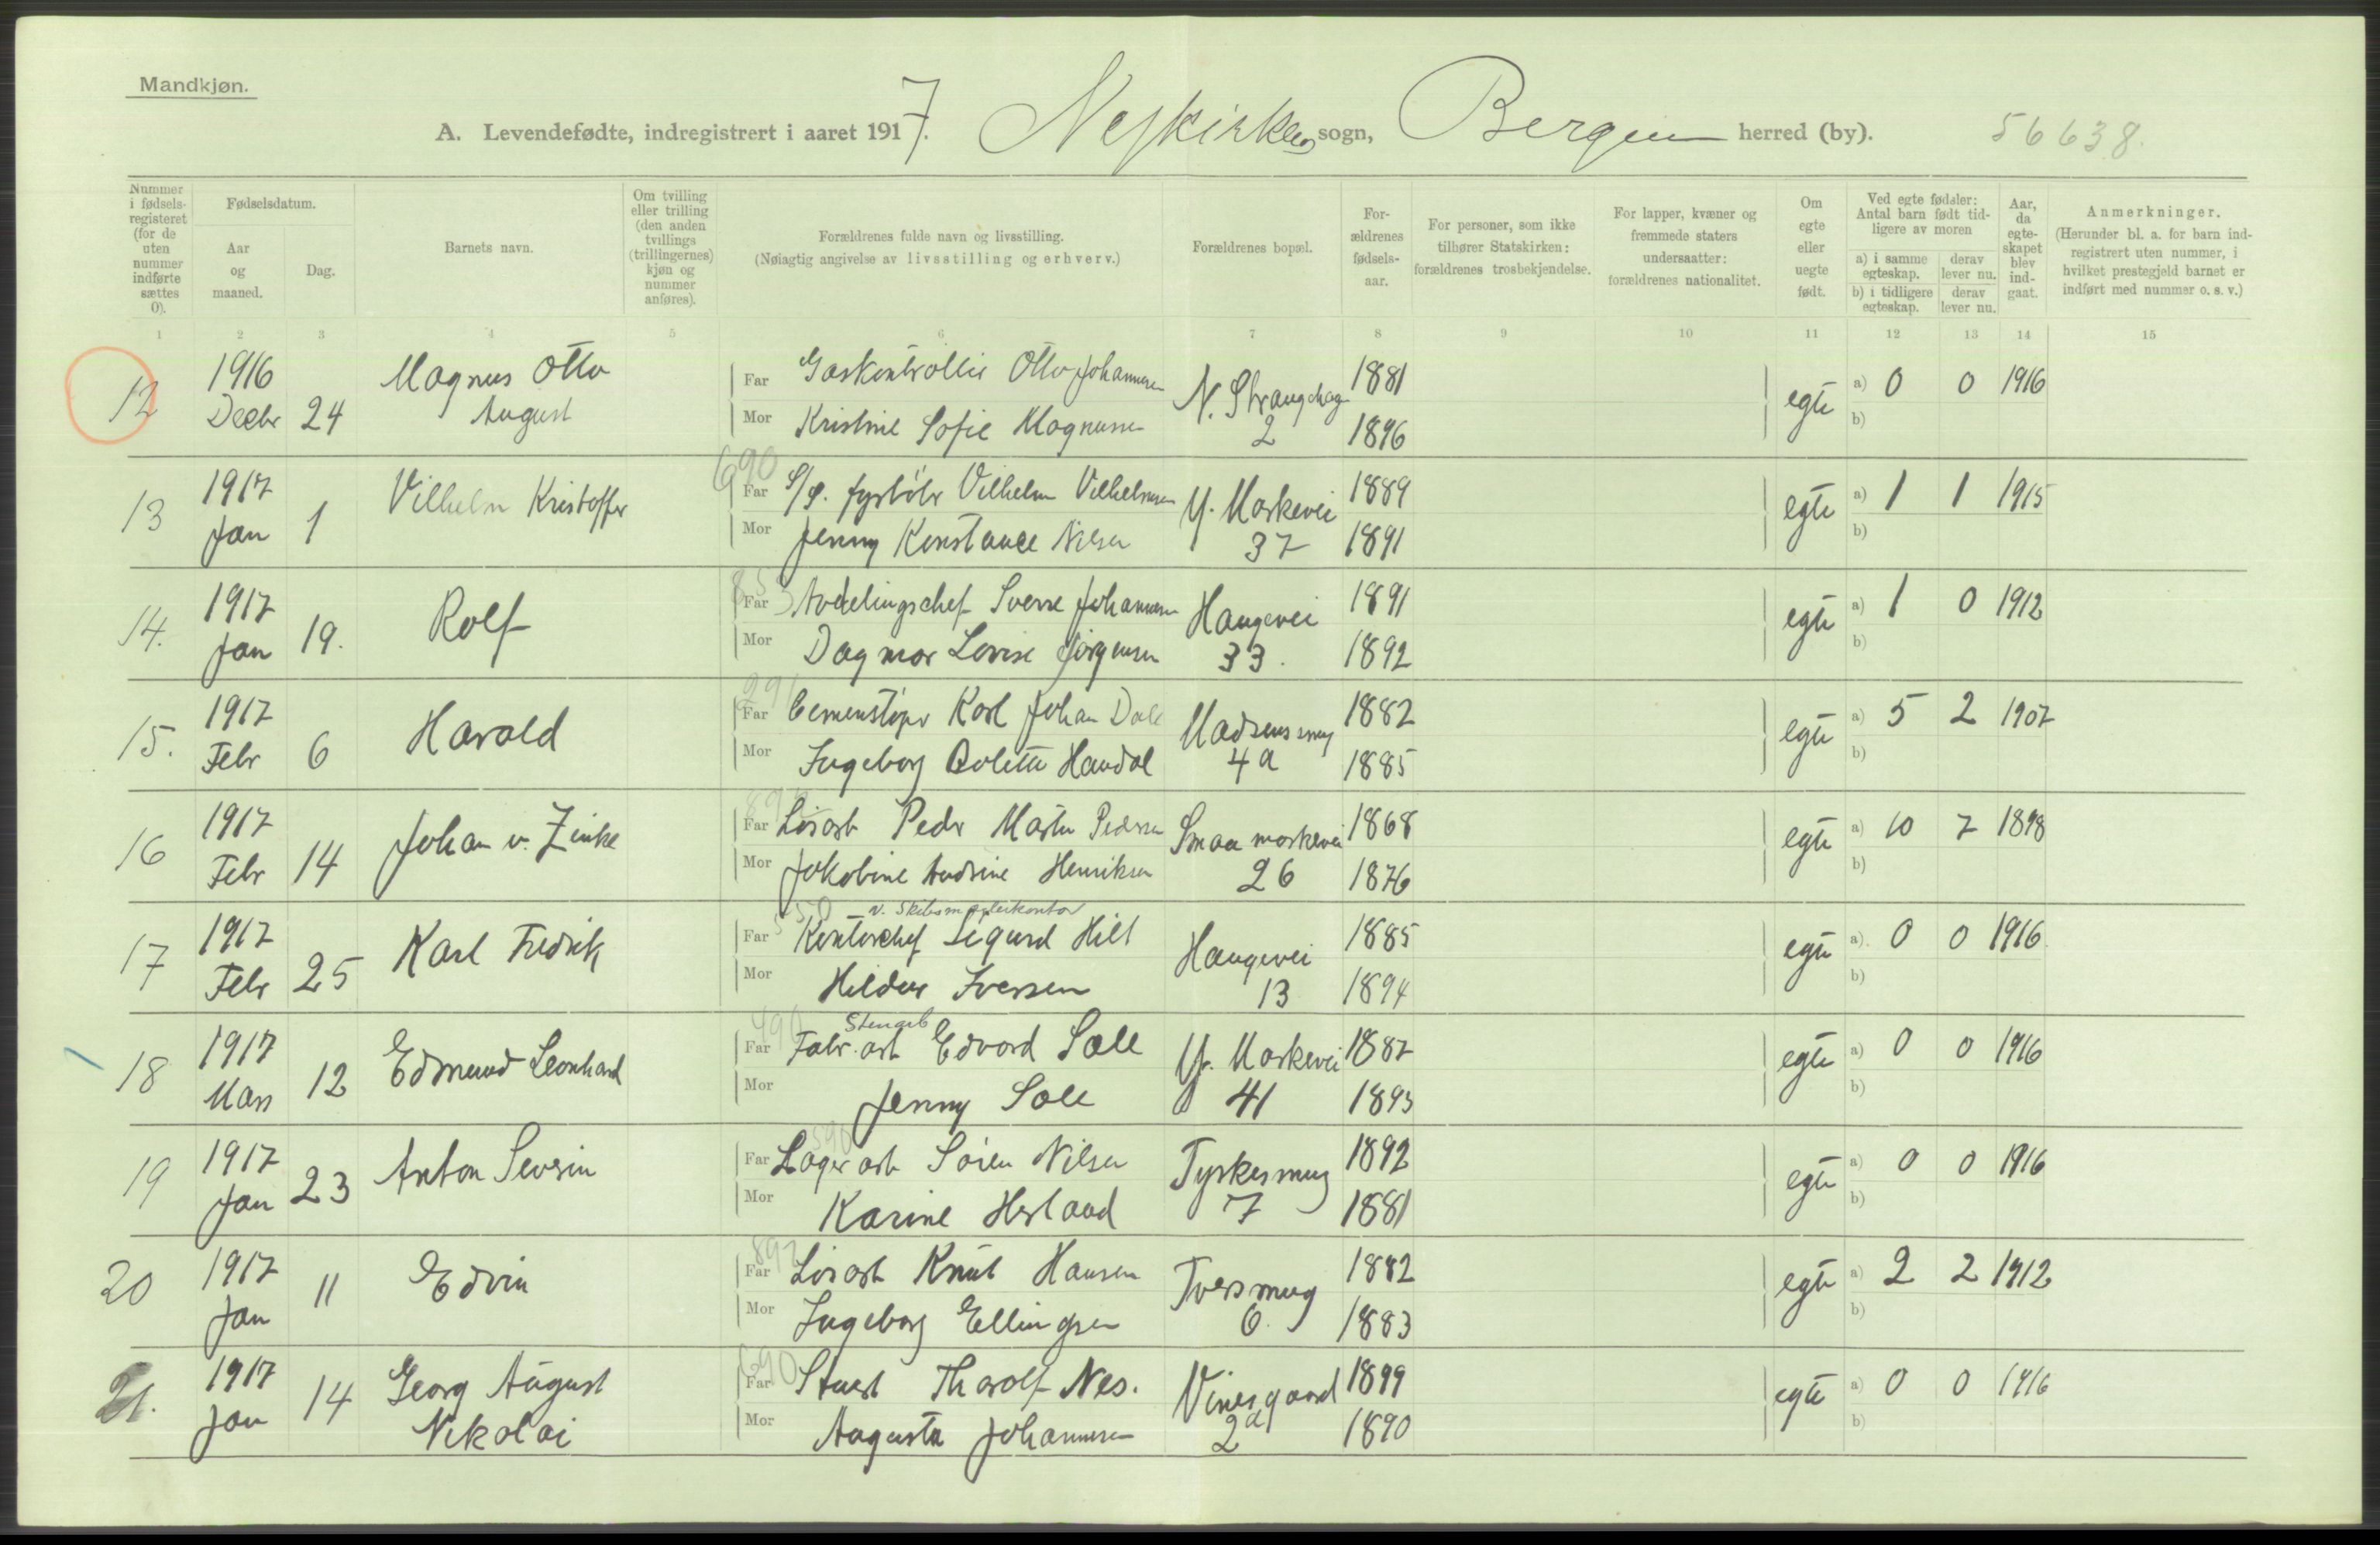 Mandkjøn.
A. Levendefødte, indregistrert i aaret 1917. Nykirkens sogn, Bergen herred (by). 56638.
Nummer i fødselsregisteret (for de uten nummer indførte sættes 0).
Fødselsdatum.
Aar og maaned.
Dag.
Barnets navn.
Om tvilling eller trilling (den anden tvillings (trillingernes) kjøn og nummer anføres).
Forældrenes fulde navn og livsstilling.
(Nøiagtig angivelse av livsstilling og erhverv.)
Forældrenes bopæl.
Forældrenes fødselsaar.
For personer, som ikke tilhører Statskirken: forældrenes trosbekjendelse.
For lapper, kvæner og fremmede staters undersaatter: forældrenes nationalitet.
Om egte eller uegte født.
Ved egte fødsler: Antal barn født tidligere av moren
a) i samme egteskap. derav lever nu.
b) i tidligere egteskap. derav lever nu.
Aar, da egteskapet blev indgaat.
Anmerkninger.
(Herunder bl. a. for barn indregistrert uten nummer, i hvilket prestegjeld barnet er indført med nummer o. s. v.)
1 2 3 4 5 6 7 8 9 10 11 12 13 14 15
12 1916 Decbr 24 Magnus Otto August
Far Gaskontrollør Otto Johannesen N. Strangehag 2 1881 egte a) 0 0 1916
Mor Kristine Sofie Magnussen 1896 b)
13 1917 Jan 1 Vilhelm Kristoffer
690
Far S/S. fyrbøter Vilhelm Vilhelmsen Y. Markevei 37 1889 egte a) 1 1 1915
Mor Jenny Konstance Nilsen 1891 b)
14. 1917 Jan 19. Rolf
Far Avdelingschef Sverre Johannesen Haugevei 33. 1891 egte a) 1 0 1912
Mor Dagmar Lovise Jørgensen 1892 b)
15. 1917 Febr 6 Harald
291
Far Cementstøper Karl Johan Dale Madsens smug 4a 1882 egte a) 5 2 1907
Mor Ingeborg Oolette Haudal 1885 b)
16 1917 Febr 14 Johan v. Zinke
Far Løsarb Peder Martin Pedersen Smaa markevei 26 1868 egte a) 10 7 1898
Mor Jakobine Andrine Henriksen 1876 b)
17 1917 Febr 25 Karl Fredrik
v. Skibsmæglerkontor
Far Kontorchef Sigurd Hilt Haugevei 13 1885 egte a) 0 0 1916
Mor Hildur Iversen 1894 b)
18 1917 Mars 12 Edmund Leonhard
490
Far Fabr. arb Edvard Sale Y. Markevei 41 1887 egte a) 0 0 1916
Mor Jenny Sale 1893 b)
19 1917 Jan 23 Anton Severin
590
Far Lager arb Søren Nilsen Tyskesmug 7 1892 egte a) 0 0 1916
Mor Karine Herland 1881 b)
20 1917 Jan 11 Edvin
892
Far Løsarb Knut Hansen Tversmug 6. 1882 egte a) 2 2 1912
Mor Ingeborg Ellingsen 1883 b)
21. 1917 Jan 14 Georg August Nikolai
690
Far Stuert Tharolf Nes. Vinesgaard 2a 1899 egte a) 0 0 1916
Mor Augusta Johannesen 1890 b)